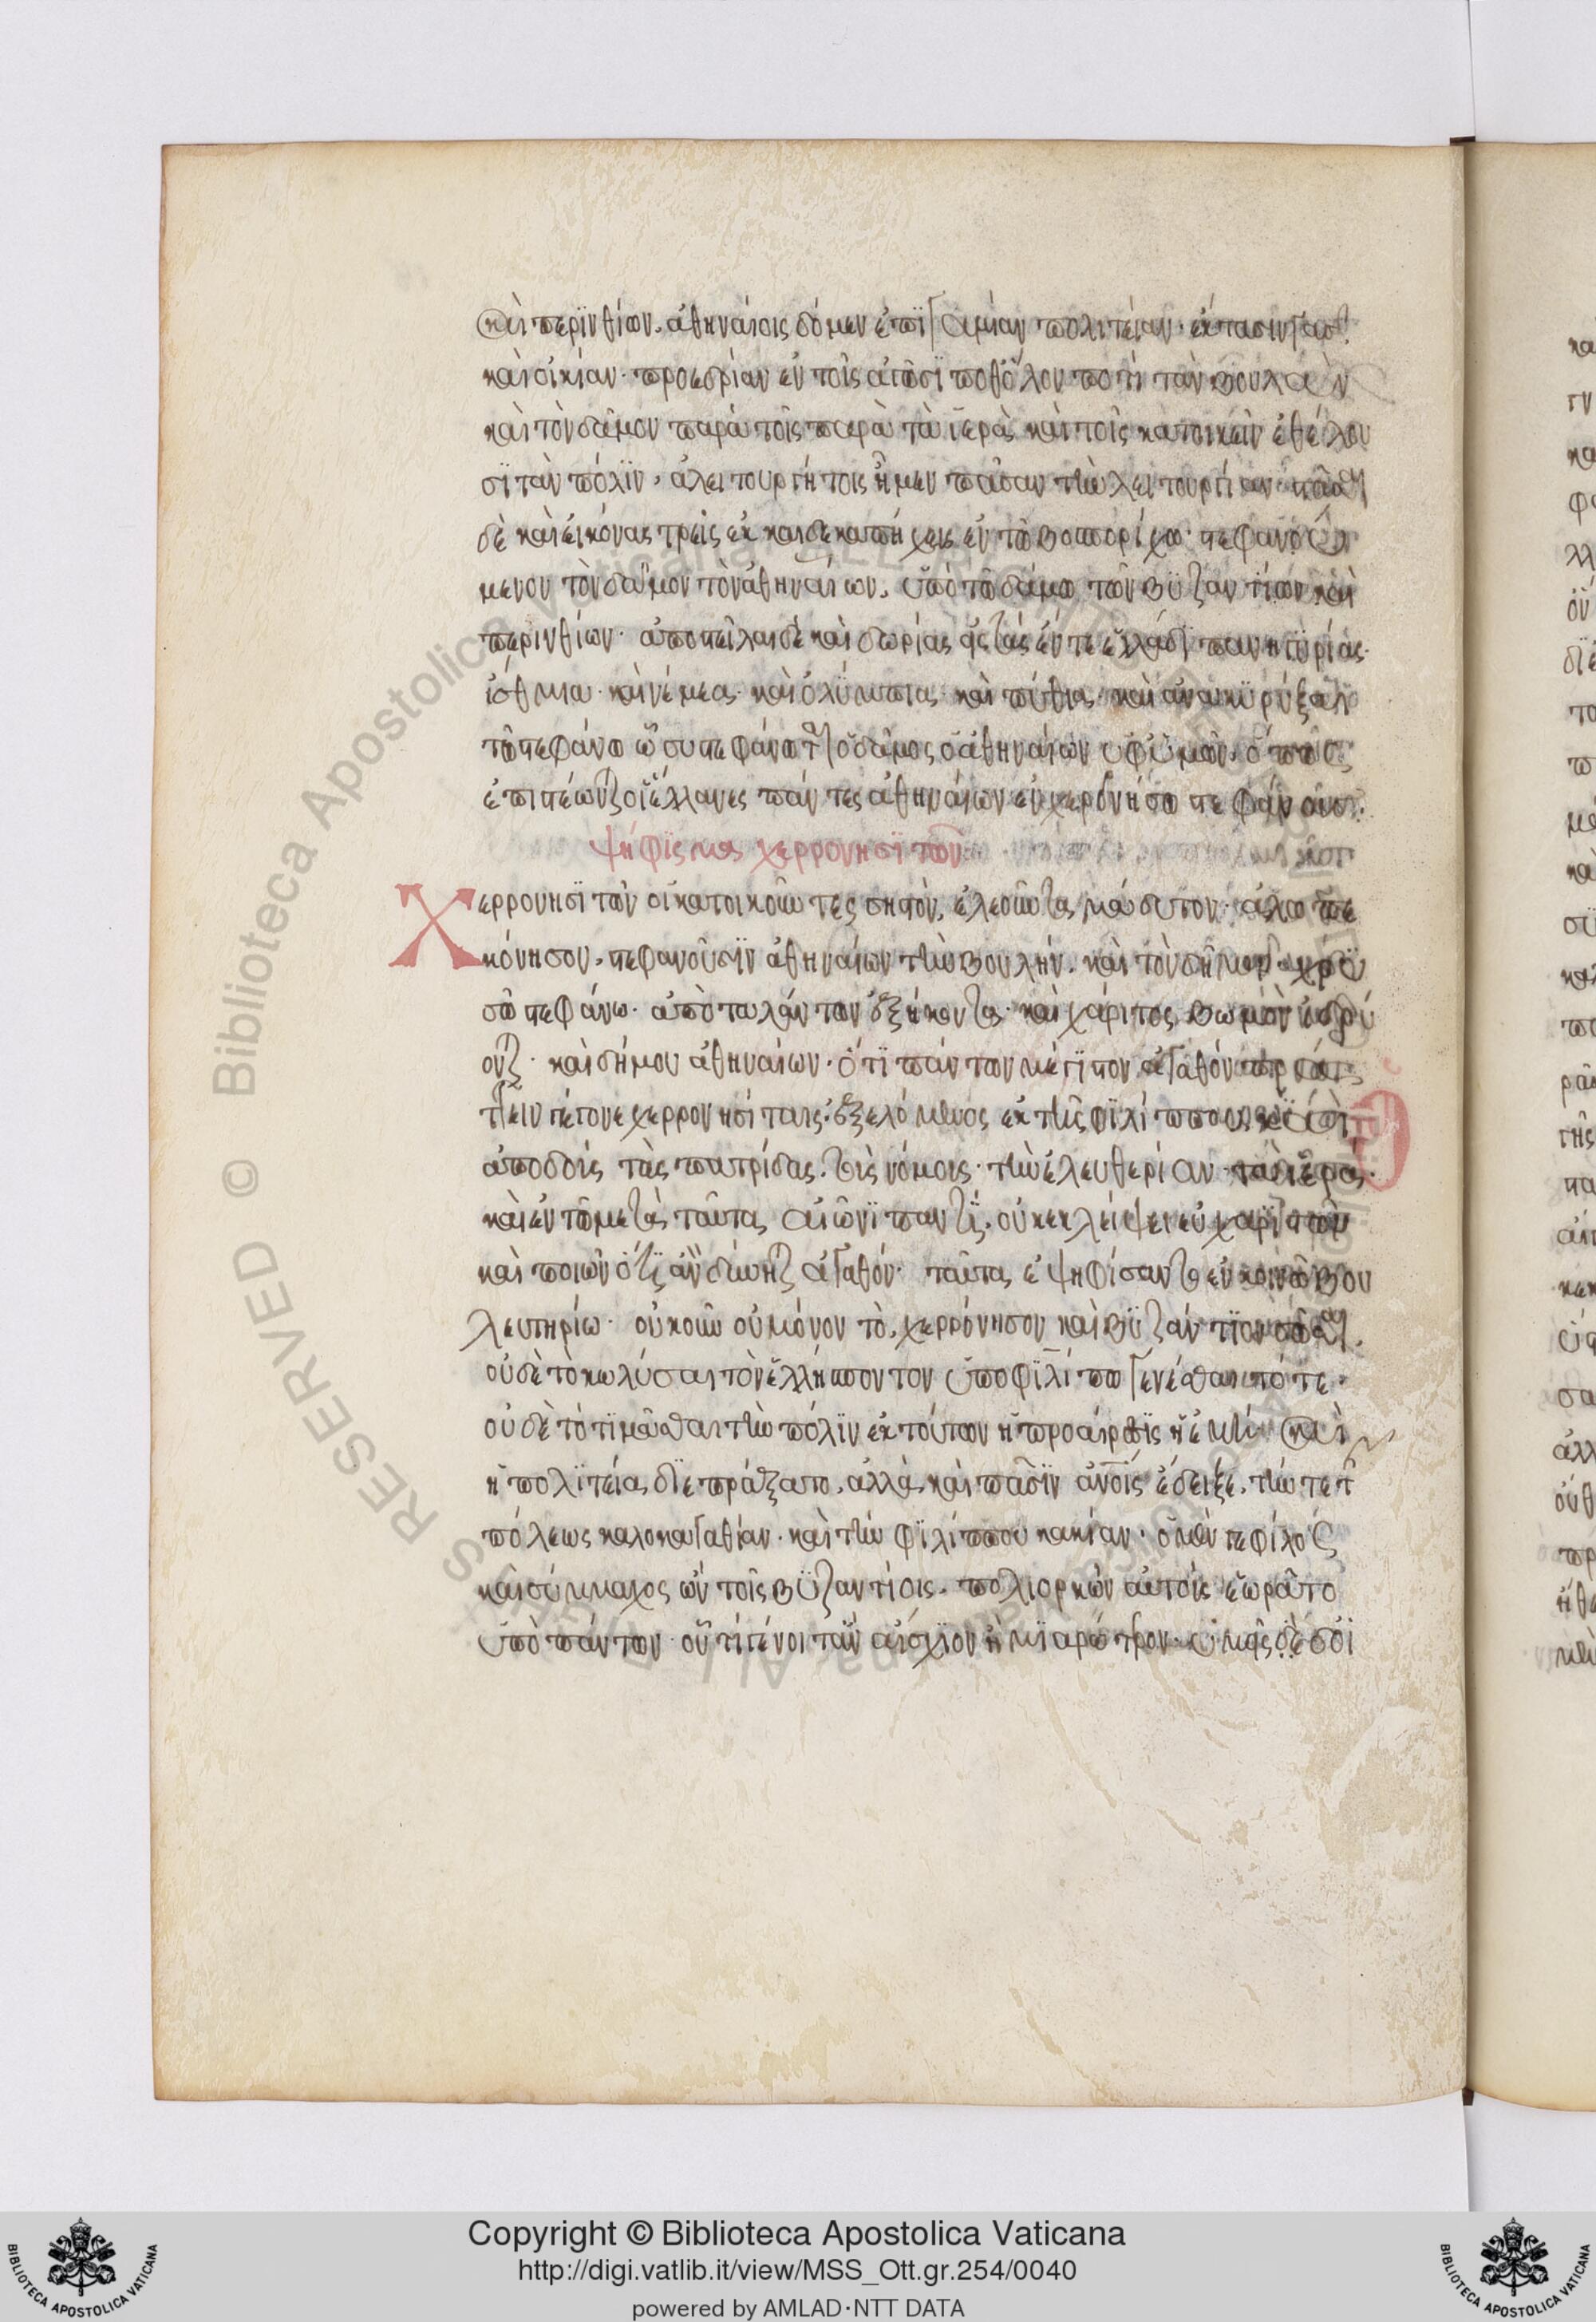 καὶ περϊνθίων. ἀθηναίοις δόμεν ἐπϊγαμίαν πολιτείαν. ἔκτασιν γᾶς
καὶ οἰκίαν. προεδρίαν ἐν τοῖς ἀγῶσϊ ποθόλον ποτὶ τὰν βουλὰν
καὶ τὸν δᾶμον παρὰ τοῖς παρὰ τὰ ἱερὰ καὶ τοῖς κατοικεῖν ἐθέλου
σϊ τὰν πόλϊν. ἀλειτουργήτοις ἦμεν πασᾶν τὰν λειτουργιᾶν στᾶσαι
δὲ καὶ εἰκόνας τρεῖς ἑκκαιδεκαπήχεις ἐν τῶ βοσπορίχω. στεφανού
μενον τὸν δᾶμον τὸν ἀθηναίων. ὑπὸ τῶ δάμω τῶν βϋζαντίων καὶ
περινθίων. ἀποστεῖλαι δὲ καὶ δωρίας ἐς τὰς ἐν τε ἑλλάδϊ πανηγϋρίας.
ἴσθμια. καὶ νέμεα. καὶ ὀλύμπια. καὶ πύθια. καὶ ἀνακϋρύξαι
τῶ στεφάνω ὧ στεφάνωται ὁ δᾶμος ὁ ἀθηναίων ὑφ ὑμῶν. ὅπως
ἐπιστέωνται οἱ ἕλλανες πάντες ἀθηναίων ἐν χερονήσω στεφάνους.
ψήφϊσμα χερρονησϊτῶν
Χερρονησϊτῶν οἱ κατοικοῦντες σηστὸν. ἐλεοῦντα. μάδυτον. ἀλωπε
κόνησον. στεφανοῦσϊν ἀθηναίων τὴν βουλήν. καὶ τὸν δῆμον χρϋ
σῶ στεφάνω. ἀπὸ ταλάντων ἑξήκοντα. καὶ χάριτος βωμὸν ἱδρύ
ονται. καὶ δήμου ἀθηναίων. ὅτϊ πάντων μέγϊστον ἀγαθόν παραί
τιον γέγονε χερρονησίταις. ἐξελόμενος ἐκ τῆς φϊλίππου. καὶ
ἀποδοὺς τὰς πατρίδας. τοὺς νόμους. τὴν ἐλευθερίαν. τὰ ἱερά.
καὶ ἐν τῶ μετὰ ταῦτα αἰῶνϊ παντὶ. οὐκ ἐλλείψει εὐχαριστῶν
καὶ ποιῶν ὅτϊ ἂν δύνηται ἀγαθόν. ταῦτα ἐψηφίσαντο ἐν κοινῶ βου
λευτηρίω. οὐκοῦν οὐ μόνον τὸ. χερρόνησον καὶ βϋζάντϊον σῶσαι.
οὐδὲ τὸ κωλύσαι τὸν ἑλλήσποντον ὑπὸ φϊλίππω γενέσθαι τότε.
οὐδὲ τὸ τϊμᾶσθαι τὴν πόλϊν ἐκ τούτων ἡ προαίρεσϊς ἡ ἐμὴ καὶ
ἡ πολϊτεία. δϊεπράξατο. ἀλλὰ καὶ πᾶσϊν ἀνοῖς ἔδειξε. τήν τε τῆς
πόλεως καλοκαγαθίαν. καὶ τὴν φϊλίππου κακίαν. ὁ μὲν γε φίλος
καὶ σύμμαχος ὢν τοῖς βϋζαντίοις. πολιορκῶν αὐτοὺς ἑωρᾶτο
ὑπὸ πάντων. οὗ τί γένοιτ ἂν αἴσχϊον ἢ μϊαρώτερον. ὑμεῖς δὲ οἱ
Copyright © Biblioteca Apostolica Vaticana
http://digi.vatlib.it/view/MSS_Ott.gr.254/0040
powered by AMLAD·NTT DATA